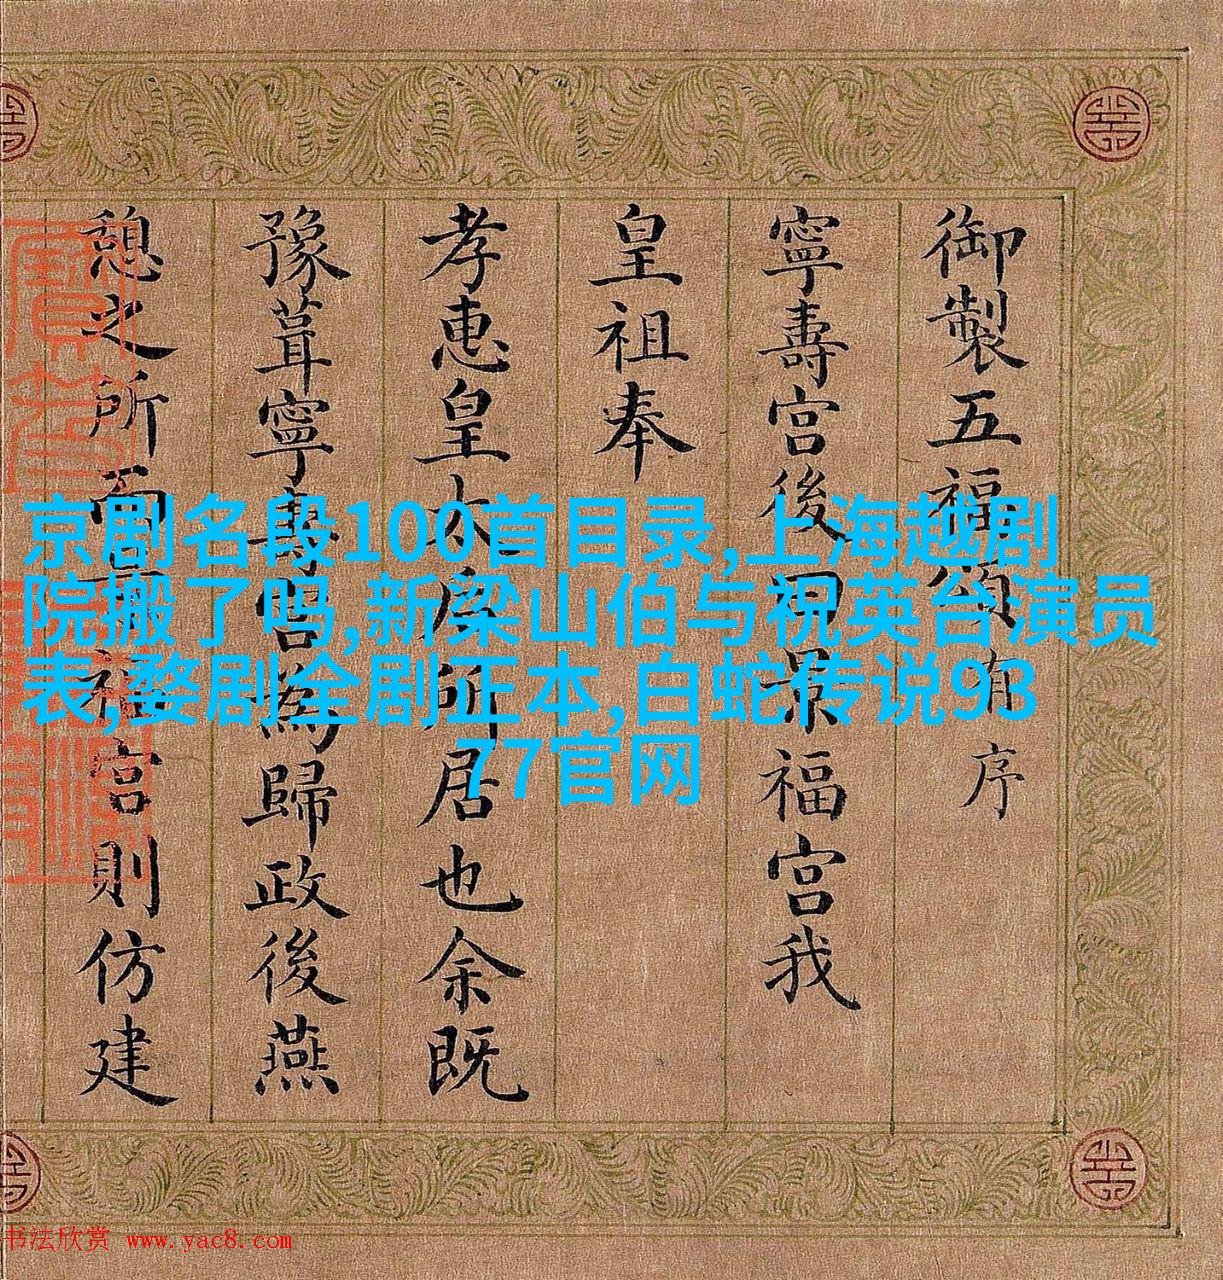 御製五福頌有序
寧壽宮後曰景福宮我
皇祖奉
孝惠皇太后所居也余既
豫葺寧壽宮為歸政後燕
憩之所而福宮則仿建
京剧名段100首目录,上海越剧
院搬了吗,新梁山伯与祝英台演员
表,婺剧全剧正本,白蛇传说93
77官网
书法欣赏 www.yac8.com